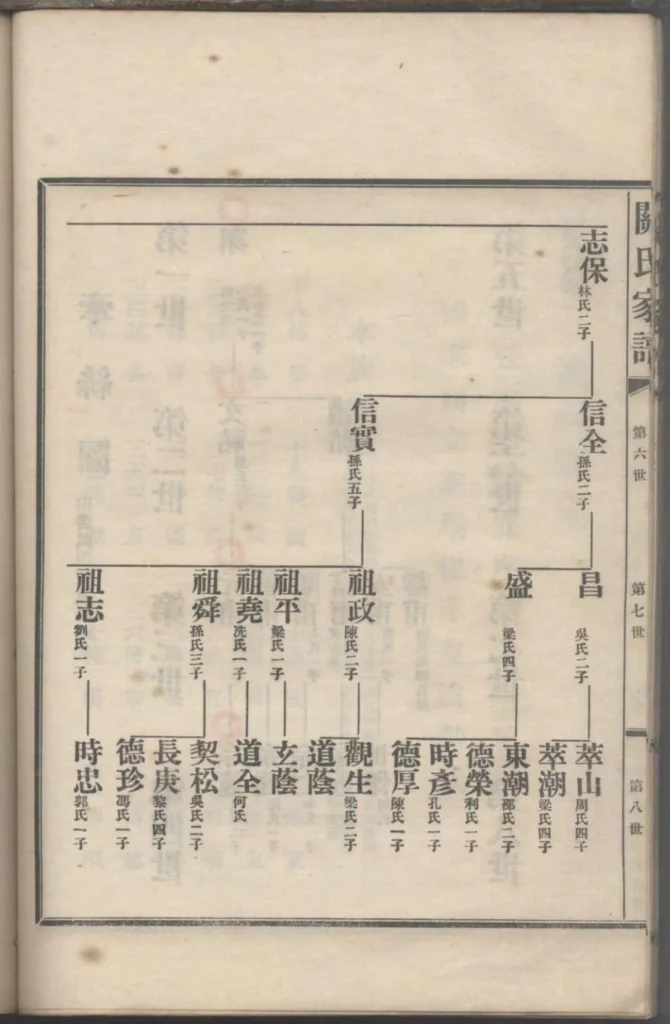 關氏家譜
第六世
第七世
第八世
志保
林氏二子
信全
孫氏二子
信實
孫氏五子
昌
吳氏二子
盛
梁氏四子
祖政
陳氏二子
祖平
梁氏一子
祖堯
冼氏一子
祖舜
孫氏三子
祖志
劉氏一子
萃山
周氏四子
萃潮
梁氏四子
東潮
邵氏二子
德榮
利氏一子
時彥
孔氏一子
德厚
陳氏一子
觀生
梁氏二子
道蔭
玄蔭
道全
何氏
契松
吳氏二子
長庚
黎氏四子
德珍
馮氏一子
時忠
郭氏一子